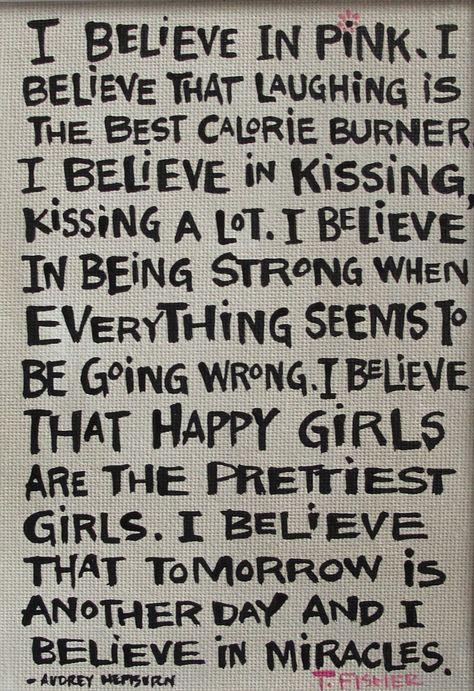 I BELIEVE IN PINK. I
BELIEVE THAT LAUGHING IS
THE BEST CALORIE BURNER
I BELIEVE IN KISSING,
KISSING A LOT. I BELIEVE
IN BEING STRONG WHEN
EVERYTHING SEEMS TO
BE GOING WRONG. I BELIEVE
THAT HAPPY GIRLS
ARE THE PRETTIEST
GIRLS. I BELIEVE
THAT TOMORROW IS
ANOTHER DAY AND I
BELIEVE IN MIRACLES.
- AUDREY HEPBURN T. FISHER